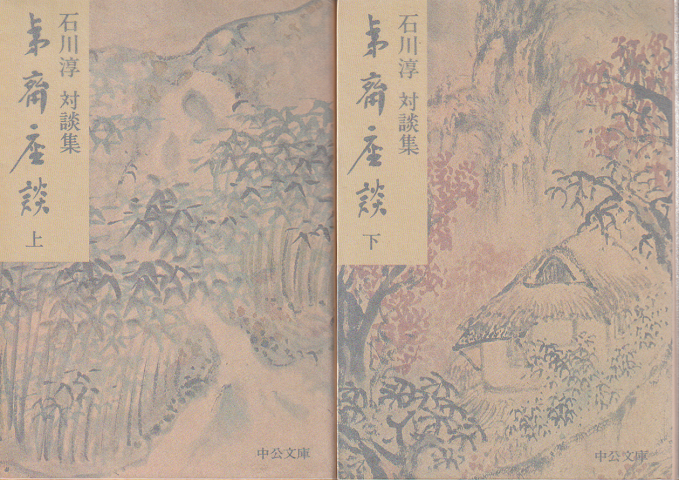 石川淳 対談集
夷齋座談
上
中公文庫
石川淳 対談集
夷齋座談
下
中公文庫